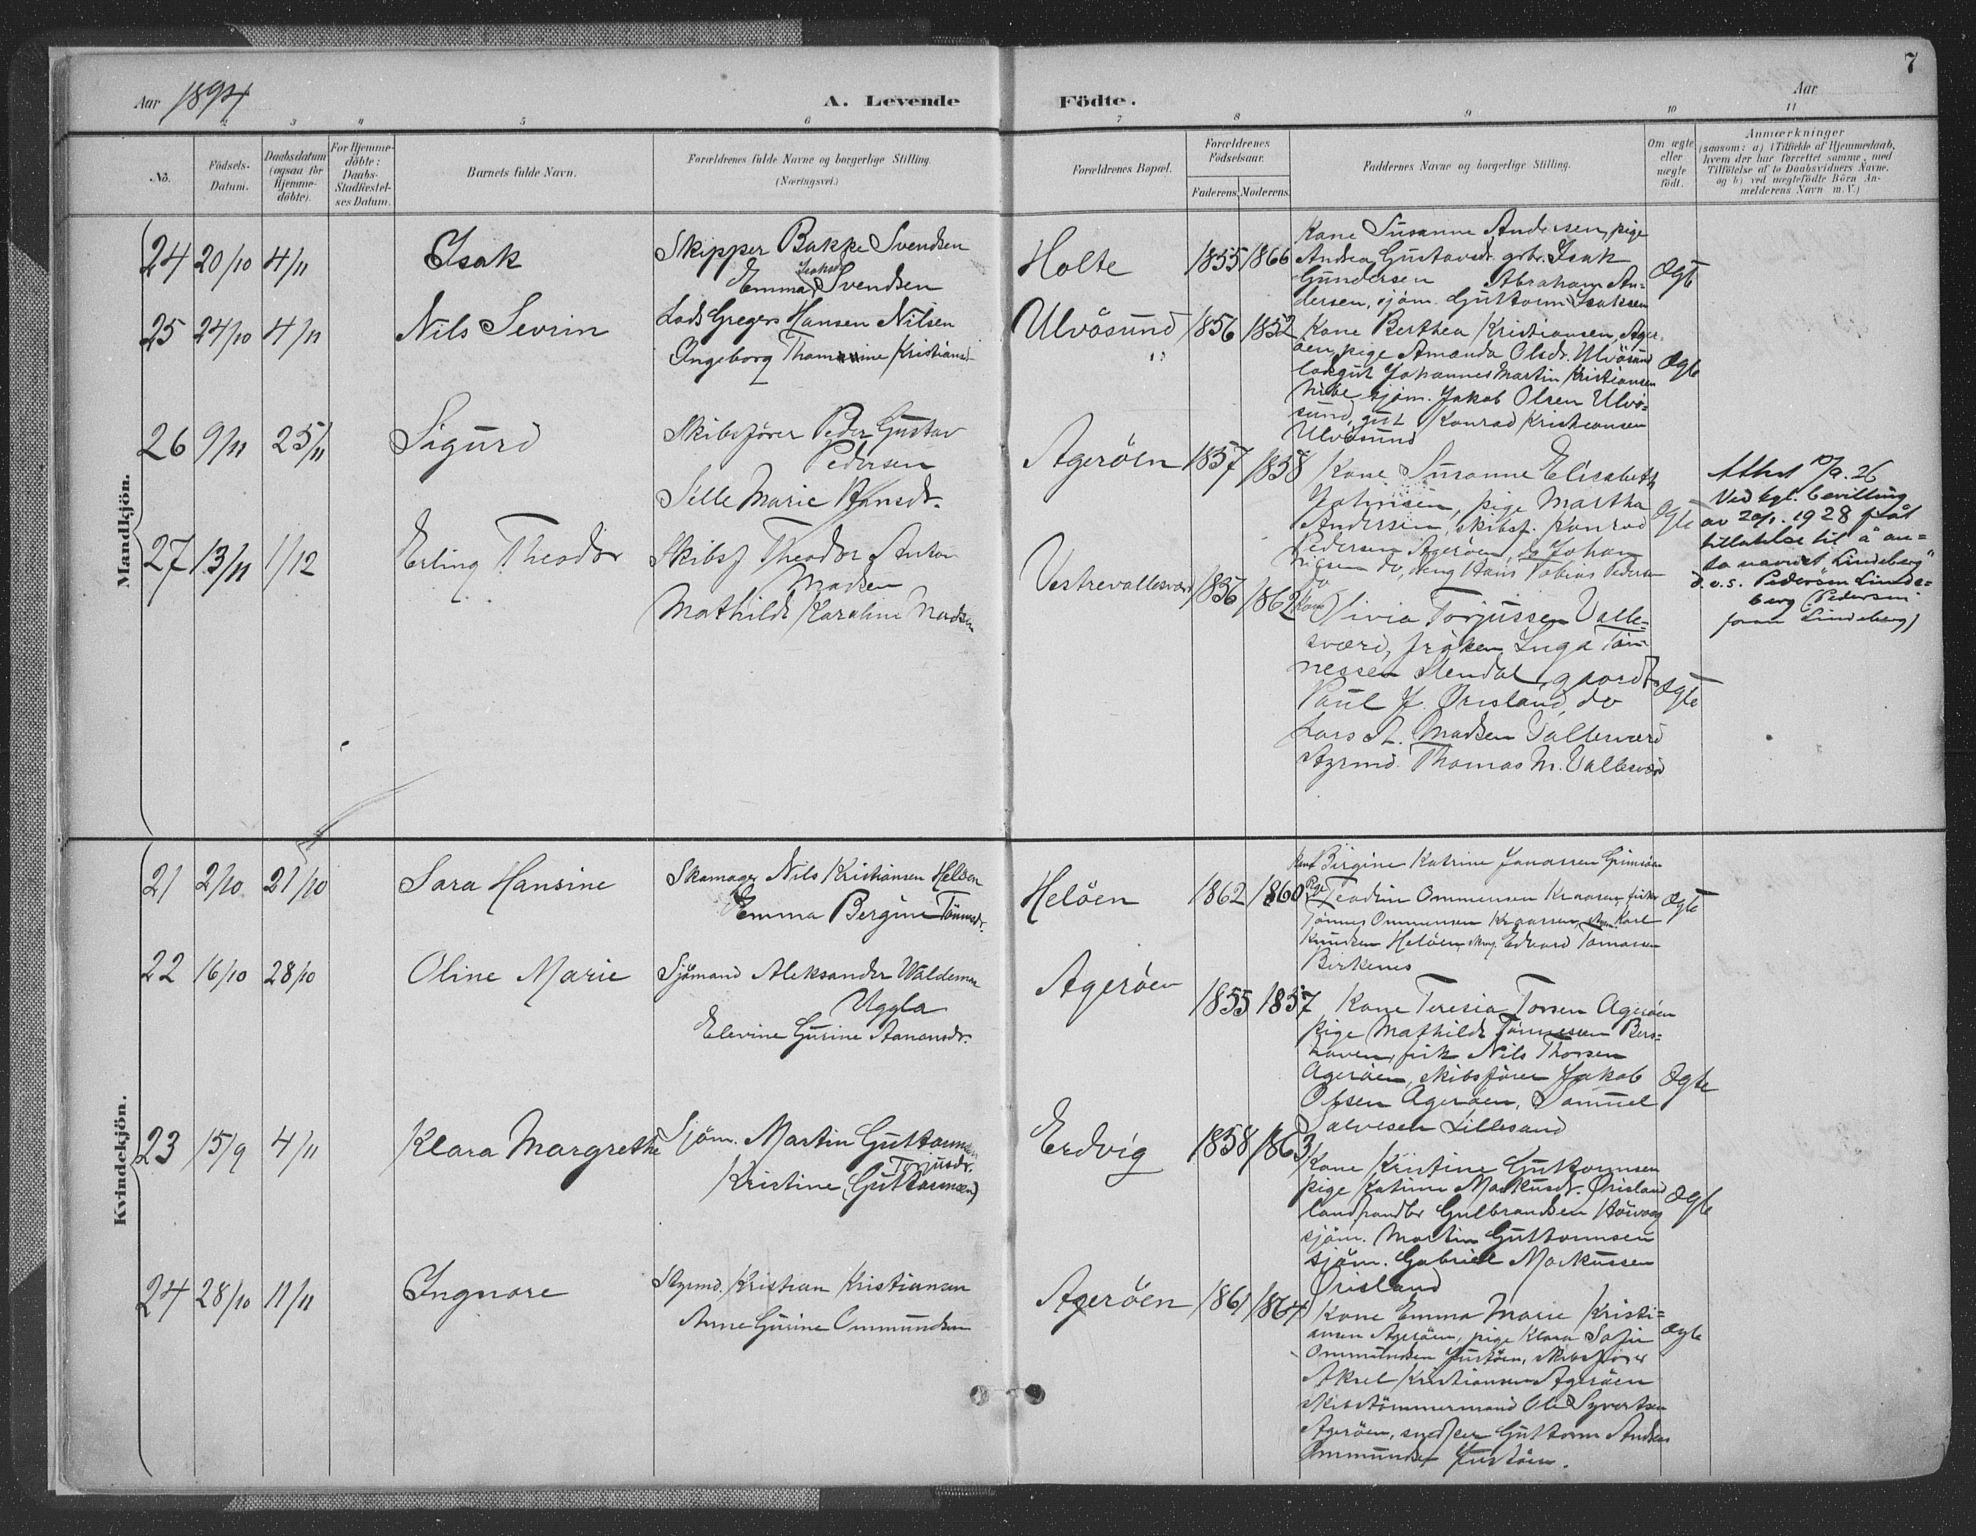 7
Aar 1894
A. Levende Födte.
Aar
2 3 4 5 6 7 8 9 10 11
No.
Födsels-
Datum.
Daabsdatum
(ogsaa for
Hjemme-
döbte).
For Hjemme-
döbte:
Daabs-
Stadfæstel-
ses Datum.
Barnets fulde Navn.
Forældrenes fulde Navne og borgerlige Stilling.
(Næringsvei.)
Forældrenes Bopæl.
Forældrenes
Födselsaar.
Faderens. Moderens.
Faddernes Navne og borgerlige Stilling.
Om ægte
eller
uægte
födt.
Anmærkninger
(saasom: a) i Tilfælde af Hjemmedaab,
hvem der har forrettet samme, med
Tilföielse af to Daabsvidners Navne,
og b) ved uægtefödte Börn An-
melderens Navn m. V.)
Mandkjön.
24 20/10 4/11 Isak
Skipper Bakke Svendsen
Isaksd.
Emma Svendsen
Holte 1855 1866
Kone Susanne Andersen, pige
Andrea Gustavsdr. grbr. Isak
Gundersen Abraham An-
dersen, sjöm. Guttorm Isaksen
Ægte
25 24/10 4/11 Nils Sevrin
Lods Gregers Hansen Nilsen
Ingeborg Thomine Kristiansd
Ulvösund 1856 1852
Kone Berthea Kristiansen, Ager-
öen, pige Amanda Olsdr. Ulvösund
losgut Johannes Martin Kristiansen
sjöm. Jakob Olsen Ulvö-
sund, gut Konrad Kristiansen
Ulvösund
Ægte
26 9/11 25/11 Sigurd
Skibsförer Peder Gustav
Pedersen
Sille Marie Hansdr.
Ageröen 1857 1858
Kone Susanne Elisabeth
Johnsen, pige Martha
Andersen, skibsf. Konrad
Pedersen Ageröen, do Johan
do, ung Hans Tobias Pedersen
do
Ægte
Attest 10/9. 26
Ved kgl. bevilling
av 20/1. 1928 fåt
tillatelse til å an-
ta navnet "Lindeberg"
d.v.s. Pedersen Linde-
berg (Pedersen
foran Lindeberg)
27 13/11 1/12 Erling Theodor
Skibsf Theodor Anton
Madsen
Mathilde Karoline Madsen
Vestrevallesverd 1836 1862
Kone
Livia Torjussen Valle-
sværd, fröken Inga Tön-
nessen Stendal, gaardbr
Paul J. Örisland, do
Lars A. Madsen Vallesværd
Styrmd. Thomas M. Vallesvær
Ægte
Kvindekjön.
21 2/10 21/10 Sara Hansine
Skomager Nils Kristiansen Helöen
Emma Bergine Tönnesdr.
Helöen 1862 1860
Kone Birgine Katrine Jonassen Grimsöen
Pige Teodine Ommensen Kraasen fisker
Tönnes Ommensen Kraasen, Karl
Knudsen Helöen, Edvard Tomassen
Birkenes
Ægte
22 16/10 28/10 Oline Marie
Sjömand Aleksander Waldemar
Uggla
Elevine Gurine Aanonsdr.
Ageröen 1855 1857
Kone Teresia Torsen Ageröen
pige Mathilde Tönnessen Bers-
haven, fisk Nils Thorsen
Ageröen, skibsförer Jakob
Olsen Ageröen, Samuel
Salvesen Lillesand
Ægte
23 15/9 4/11 Klara Margrethe
Sjöm. Martin Guttormsen
Torjusdr.
Kristine (Guttormsen)
Erdvig 1858 1863
Kone Kristine Guttormsen
pige Katrine Markusdr. Örisland
landhandler Gulbrandsen Hövaag
sjöm. Martin Guttormsen
sjöm. Gabriel Markussen
Örisland
Ægte
24 28/10 11/11 Ingvore
Styrmd. Kristian Kristiansen
Anne Gurine Ommundsen
Ageröen 1861 1864
Kone Emma Marie Kristi-
ansen Ageröen, pige Klara Sofie
Ommundsen Justöen, skibsförer
Aksel Kristiansen Ageröen
skibstömmermand Ole Syvertsen
Ageröen, snedker Guttorm Andreas
Ommundsen Justöen.
Ægte